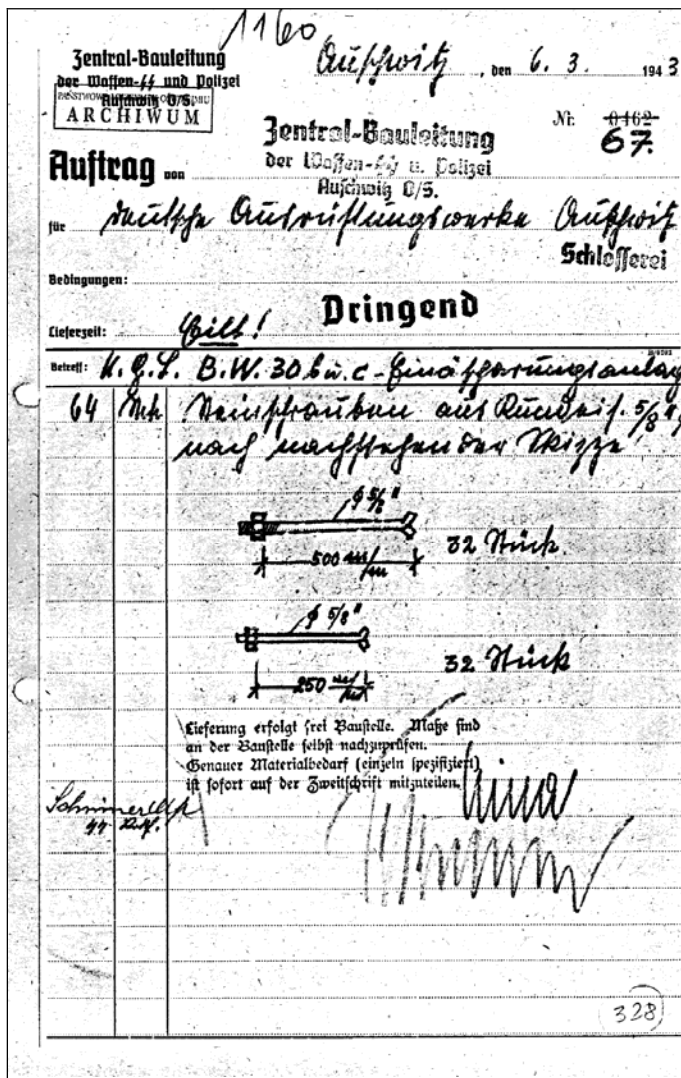 1160
Zentral-Bauleitung
der Waffen-SS und Polizei
Auschwitz O/S.
ARCHIWUM
Auschwitz, den 6. 3. 1943
Nr. 0462
67.
Zentral-Bauleitung
der Waffen-SS u. Polizei
Auschwitz O/S.
Auftrag von
für Deutsche Ausrüstungswerke Auschwitz
Schlosserei
Bedingungen:
Dringend
Lieferzeit: Eilt!
Betreff: K.G.L. B.W. 30 b u. c - Einäscherungsanlag
64 Stck Steinschrauben aus Rundeis. 5/8"
nach nachstehender Skizze
ϕ 5/8"
32 Stück.
500 m/m
ϕ 5/8"
32 Stück
250 m/m
Lieferung erfolgt frei Baustelle. Maße sind
an der Baustelle selbst nachzuprüfen.
Genauer Materialbedarf (einzeln spezifiziert)
ist sofort auf der Zweitschrift mitzuteilen.
328